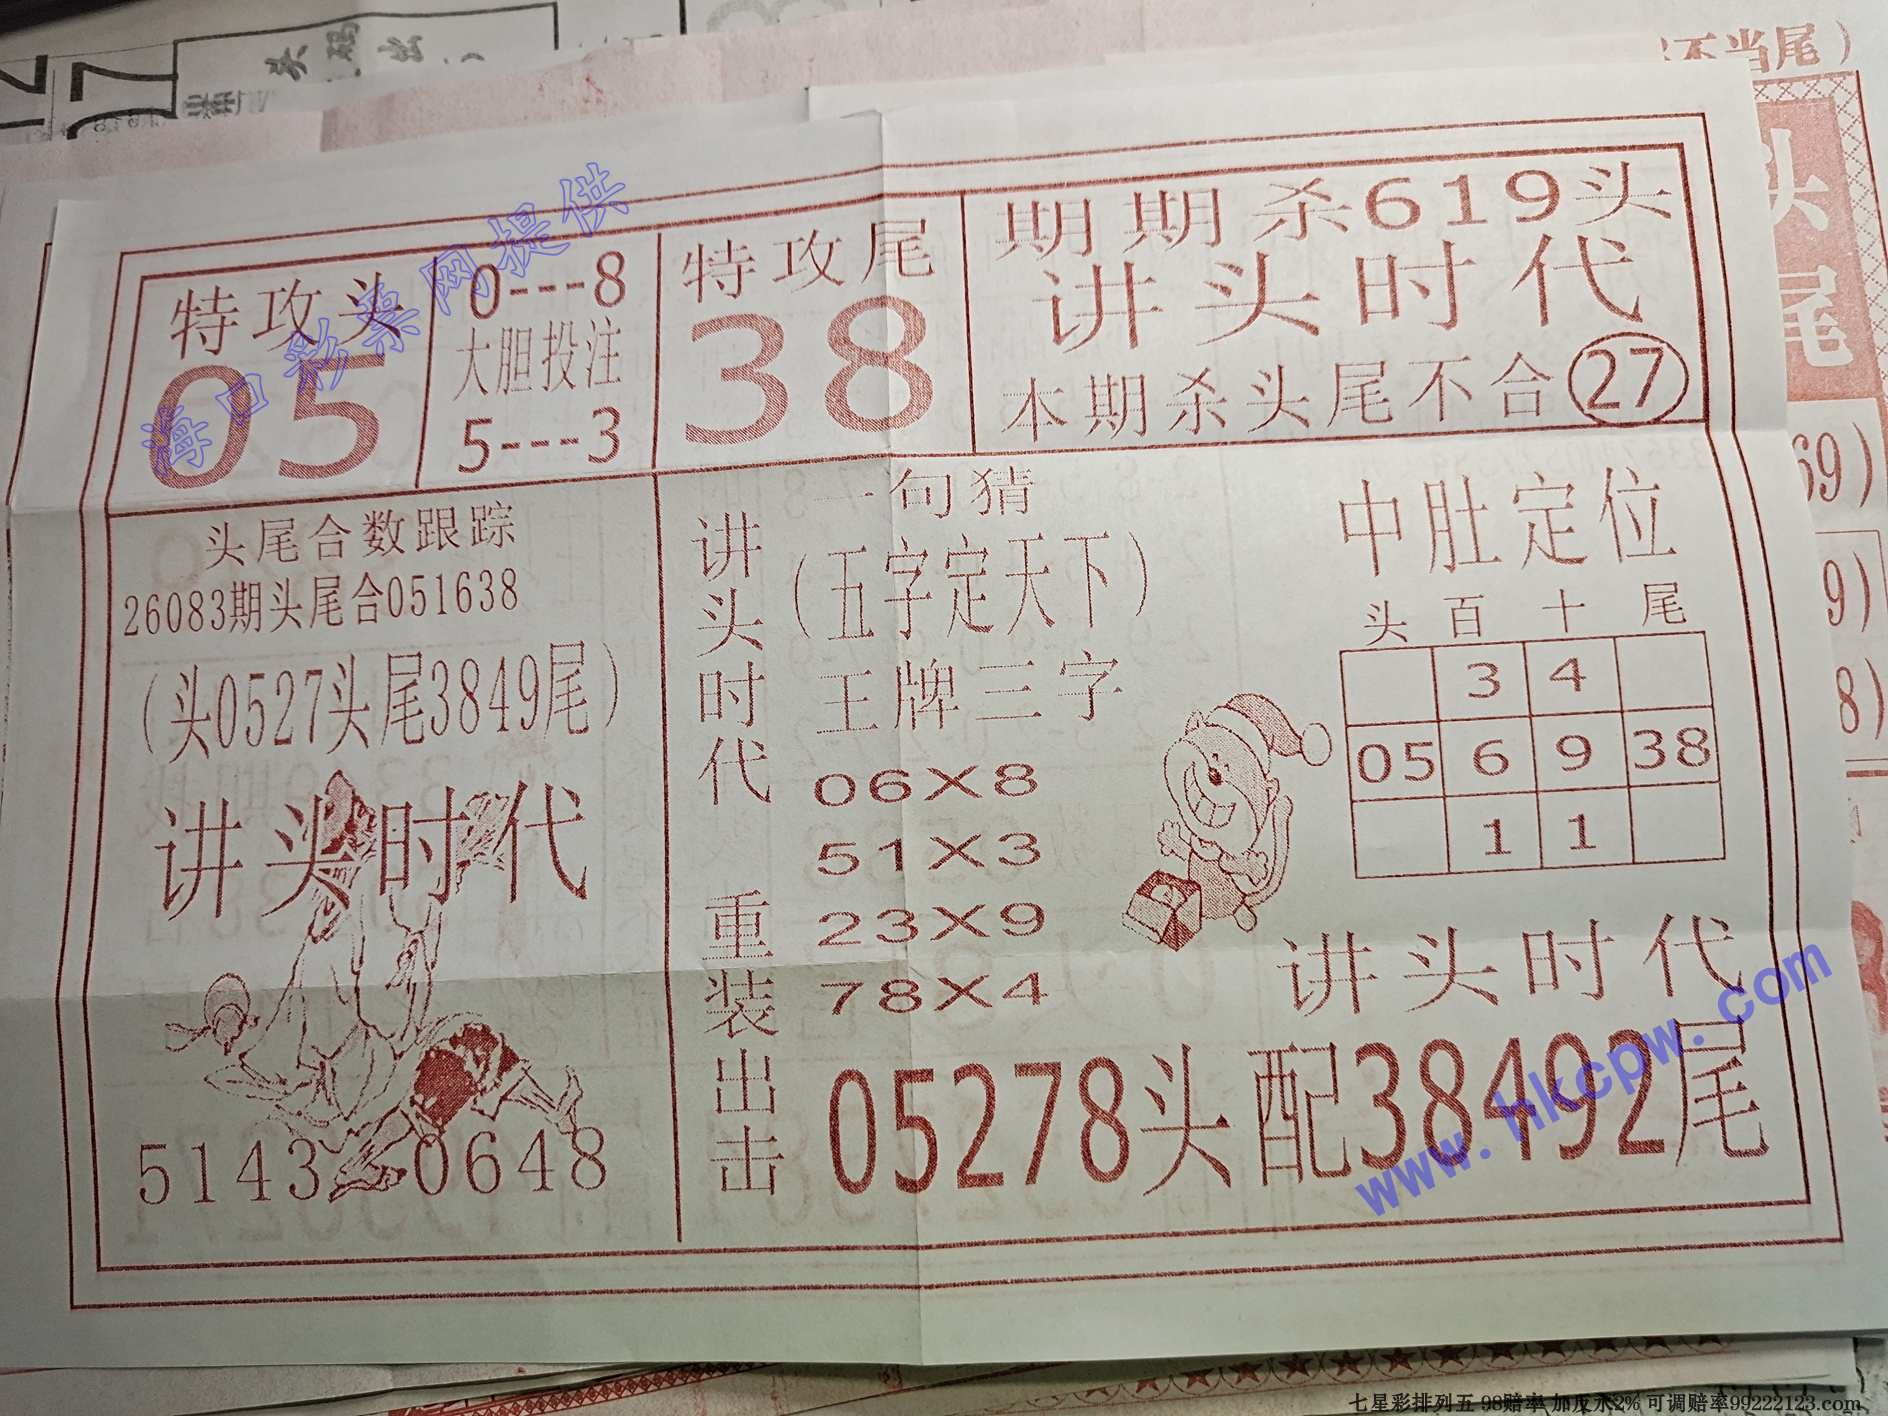 头码出
17
不当尾）
头
尾
69）
9）
8）
海口彩票网提供
特攻头
05
0---8
大胆投注
5---3
特攻尾
38
期期杀619头
讲头时代
本期杀头尾不合27
头尾合数跟踪
26083期头尾合051638
（头0527头尾3849尾）
讲头时代
5143 0648
讲头时代 重装出击
一句猜
（五字定天下）
王牌三字
06X8
51X3
23X9
78X4
中肚定位
头 百 十 尾
3 4
05 6 9 38
1 1
讲头时代
05278头配38492尾
www.hkcpw.com
七星彩排列五 98赔率 加反水2% 可调赔率99222123.com